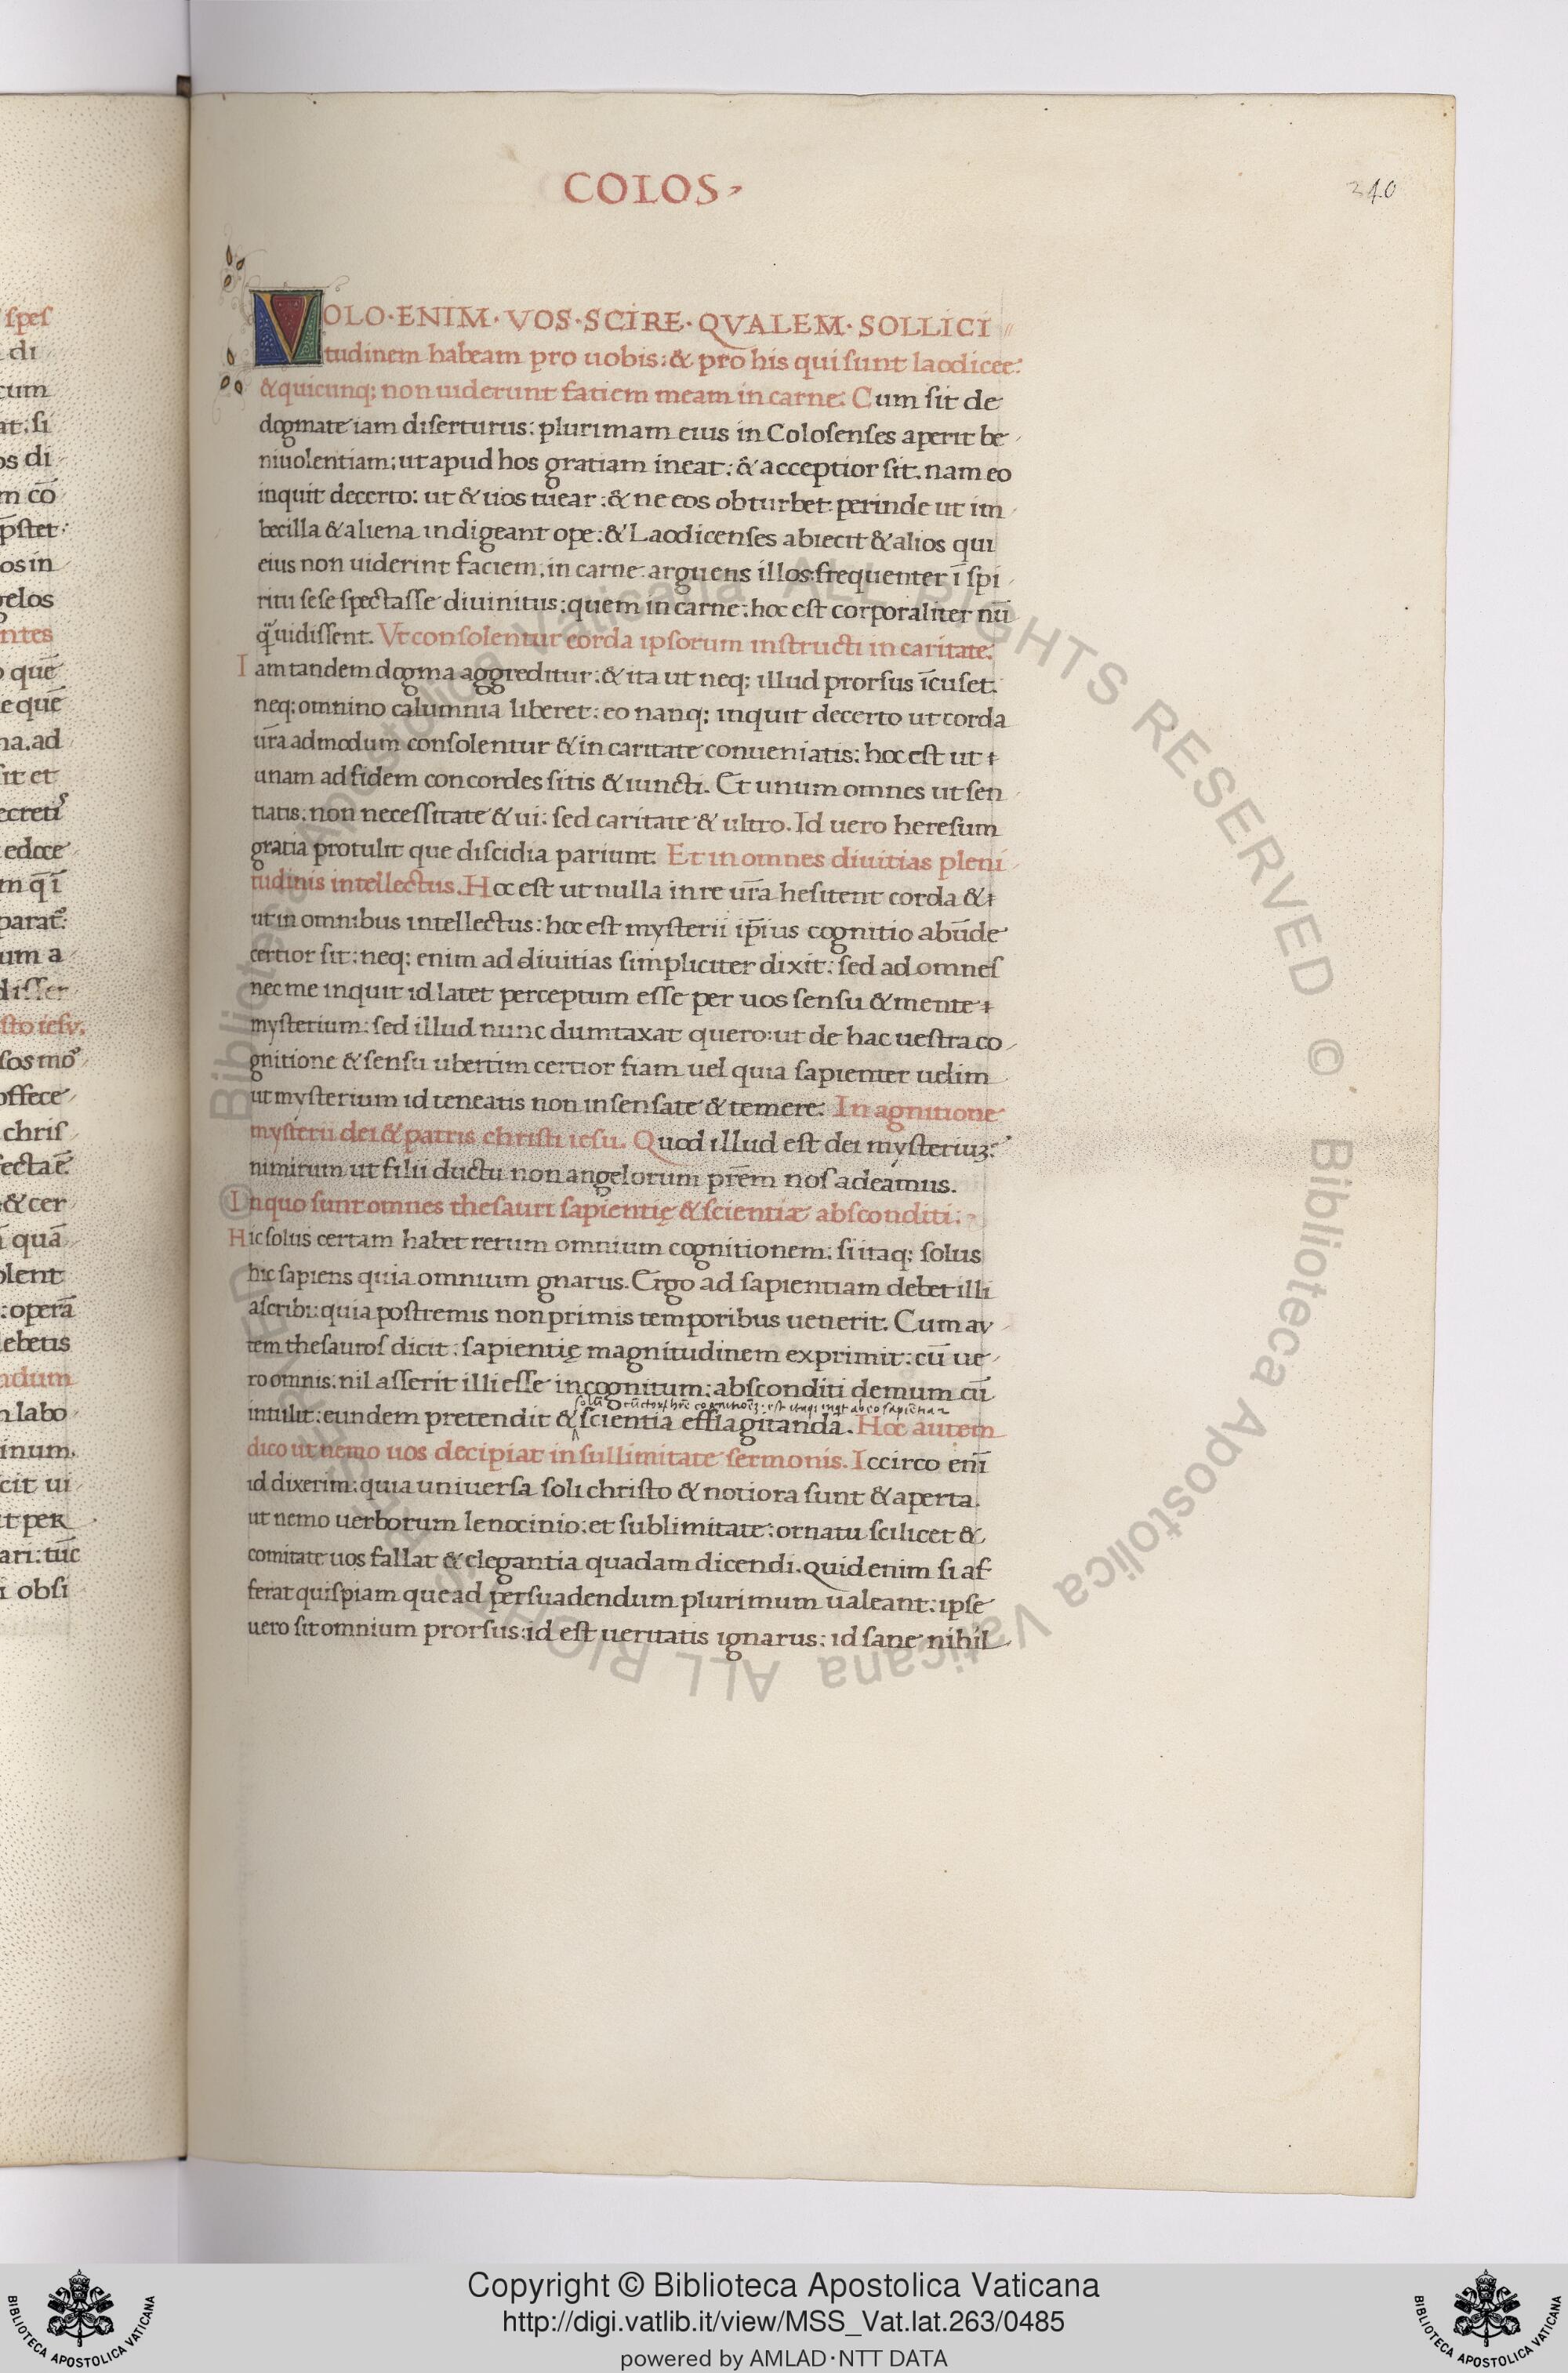 COLOS
340
VOLO·ENIM·VOS·SCIRE·QVALEM·SOLLICI
tudinem habeam pro uobis: & pro his qui sunt laodicee:
& quicunq; non uiderunt fatiem meam in carne. Cum sit de
dogmate iam diserturus: plurimam eius in Colosenses aperit be
niuolentiam: ut apud hos gratiam ineat: & acceptior sit. nam eo
inquit decerto: ut & uos tuear: & ne eos obturbet perinde ut im
becilla & aliena indigeant ope: & Laodicenses abiecit & alios qui
eius non uiderint faciem, in carne. arguens illos frequenter ī spi
ritu sese spectasse diuinitus: quem in carne: hoc est corporaliter nū
q̄ uidissent. Vt consolentur corda ipsorum instructi in caritate.
Iam tandem dogma aggreditur: & ita ut neq; illud prorsus īcuset:
neq; omnino calumnia liberet: eo nanq; inquit decerto ut corda
ur̄a admodum consolentur & in caritate conueniatis: hoc est ut
unam ad fidem concordes sitis & iuncti. Et unum omnes ut sen
tiatis: non necessitate & ui: sed caritate & ultro. Id uero heresum
gratia protulit que discidia pariunt. Et in omnes diuitias pleni
tudinis intellectus. Hoc est ut nulla in re ur̄a hesitent corda &
ut in omnibus intellectus: hoc est mysterii ip̄ius cognitio abūde
certior sit: neq; enim ad diuitias simpliciter dixit: sed ad omnes
nec me inquit id latet perceptum esse per uos sensu & mente
mysterium: sed illud nunc dumtaxat quero: ut de hac uestra co
gnitione & sensu ubertim certior fiam uel quia sapienter uelim
ut mysterium id teneatis non insensate & temere. In agnitione
mysterii dei & patris christi iesu. Quod illud est dei mysteriuʒ:
nimirum ut filii ductu non angelorum pr̄em nos adeamus.
In quo sunt omnes thesauri sapientię & scientiæ absconditi.
Hic solus certam habet rerum omnium cognitionem: si itaq; solus
hic sapiens quia omnium gnarus. Ergo ad sapientiam debet illi
ascribi: quia postremis non primis temporibus uenerit. Cum au
tem thesauros dicit: sapientię magnitudinem exprimit: cū ue
ro omnis: nil asserit illi esse incognitum: absconditi demum cū
intulit: eundem pretendit & scientia efflagitanda. Hoc autem
dico ut nemo uos decipiat in sullimitate sermonis. Iccirco enī
id dixerim: quia uniuersa soli christo & notiora sunt & aperta.
ut nemo uerborum lenocinio: et sublimitate: ornatu scilicet &
comitate uos fallat & elegantia quadam dicendi. Quid enim si af
ferat quispiam que ad persuadendum plurimum ualeant: ipse
uero sit omnium prorsus: id est ueritatis ignarus: id sane nihil
Copyright © Biblioteca Apostolica Vaticana
http://digi.vatlib.it/view/MSS_Vat.lat.263/0485
powered by AMLAD·NTT DATA